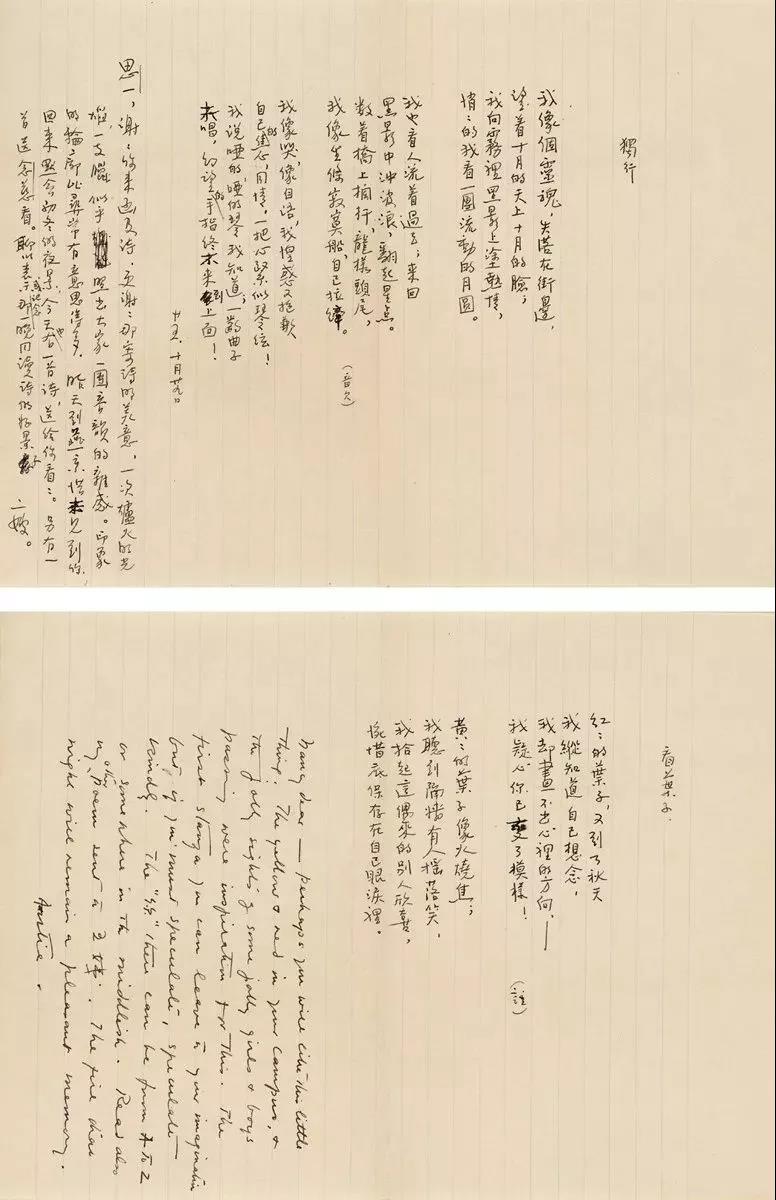 獨行
我像個靈魂，失落在街邊，
望着十月的天上十月的臉，
我向霧裡黑影上塗熱情，
悄悄的我看一團流動的月圓。
我也看人流着過去；來回
黑影中沖波浪，翻起星点。
数着橋上欄杆，龍樣頭尾，
我像坐條寂寞船，自己拉縴。
（音欠）
我像哭，像自語，我惶惑又抱歉
自己的焦心，同情，一把心緊似琴絃！
我说哑的，哑的琴我知道；一齣曲子
未唱，幻望的手指終未来到上面！
廿五、十月廿九日
思一，謝謝你来函及诗。更謝謝那寄诗的美意，一次爐火的光
一支臘似乎出大家一團音韻的雜感。印象
的輪廓比尋常有意思得多。昨天到燕京惜未見到你
回来会初冬的夜景，今天也有一首诗，送给你看看。另有一
首送念慈看。聊以表示或纪念那晚同讀诗的好景
二嫂。
看葉子
紅紅的葉子，又到了秋天
我縱知道自己想念，
我却畫不出心裡的方向，—
我疑心你已變了模樣！
（註）
黃黃的葉子像火燒焦；
我聽到隔墻有人搖落笑，
我拾起這偶來的别人欣喜，
惋惜底保存在自己眼淚裡。
Nancy dear — perhaps you will like this little
thing. The yellow & red in your campus, &
the jolly sights of some jolly girls & boys
passing were inspiration for this. The
first stanza you can leave to your imagination
but, if you must speculate, speculate
kindly. The "你" there can be from A to Z
or somewhere in the middlish. Read also
my other poem sent to. The fire-side
night will remain a pleasant memory.